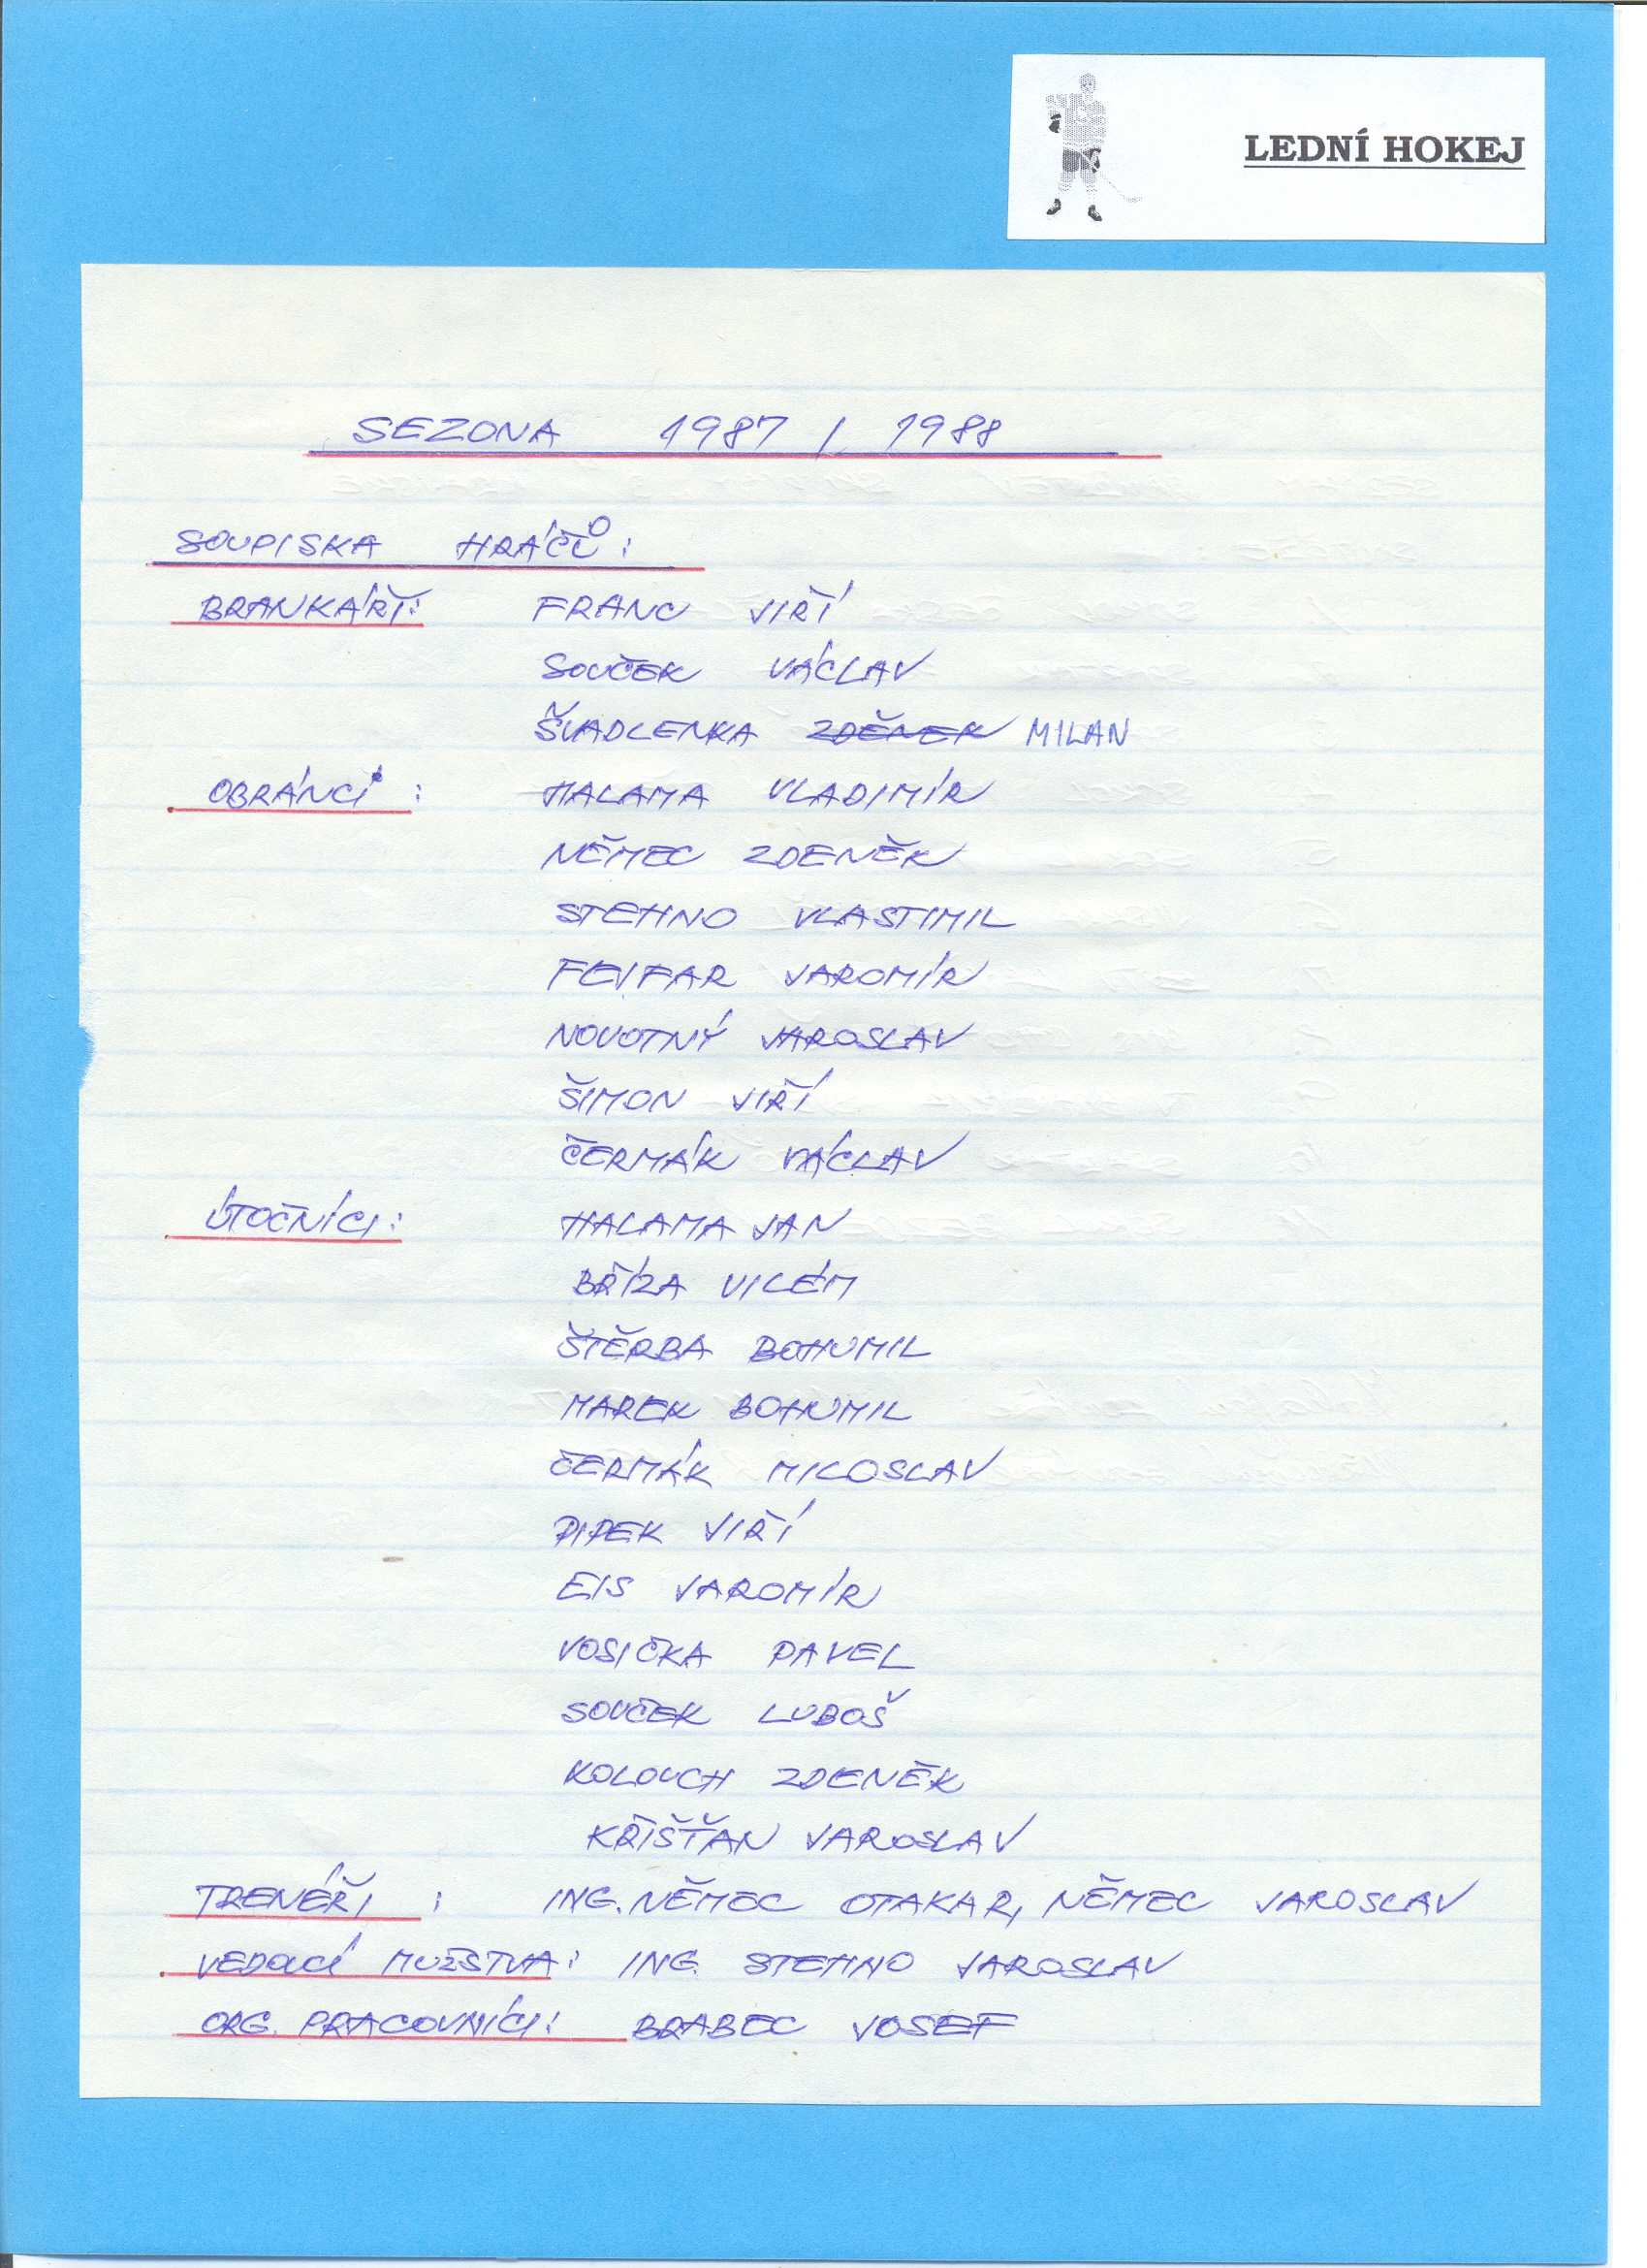 LEDNÍ HOKEJ
SEZONA 1987 / 1988
SOUPISKA HRÁČŮ:
BRANKÁŘI: FRANC JIŘÍ
SOUČEK VÁCLAV
ŠVADLENKA ZDĚNEK MILAN
OBRÁNCI: HALAMA VLADIMÍR
NĚMEC ZDENĚK
STEHNO VLASTIMIL
FEJFAR JAROMÍR
NOVOTNÝ JAROSLAV
ŠIMON JIŘÍ
ČERMÁK VÁCLAV
ÚTOČNÍCI: HALAMA JAN
BŘÍZA VILÉM
ŠTĚRBA BOHUMIL
MAREK BOHUMIL
ČERMÁK MILOSLAV
PIPEK JIŘÍ
EIS JAROMÍR
VOSIČKA PAVEL
SOUČEK LUBOŠ
KOLOUCH ZDENĚK
KŘIŠŤAN JAROSLAV
TRENÉŘI: ING. NĚMEC OTAKAR, NĚMEC JAROSLAV
VEDOUCÍ MUŽSTVA: ING. STEHNO JAROSLAV
ORG. PRACOVNÍCI: BRABEC JOSEF